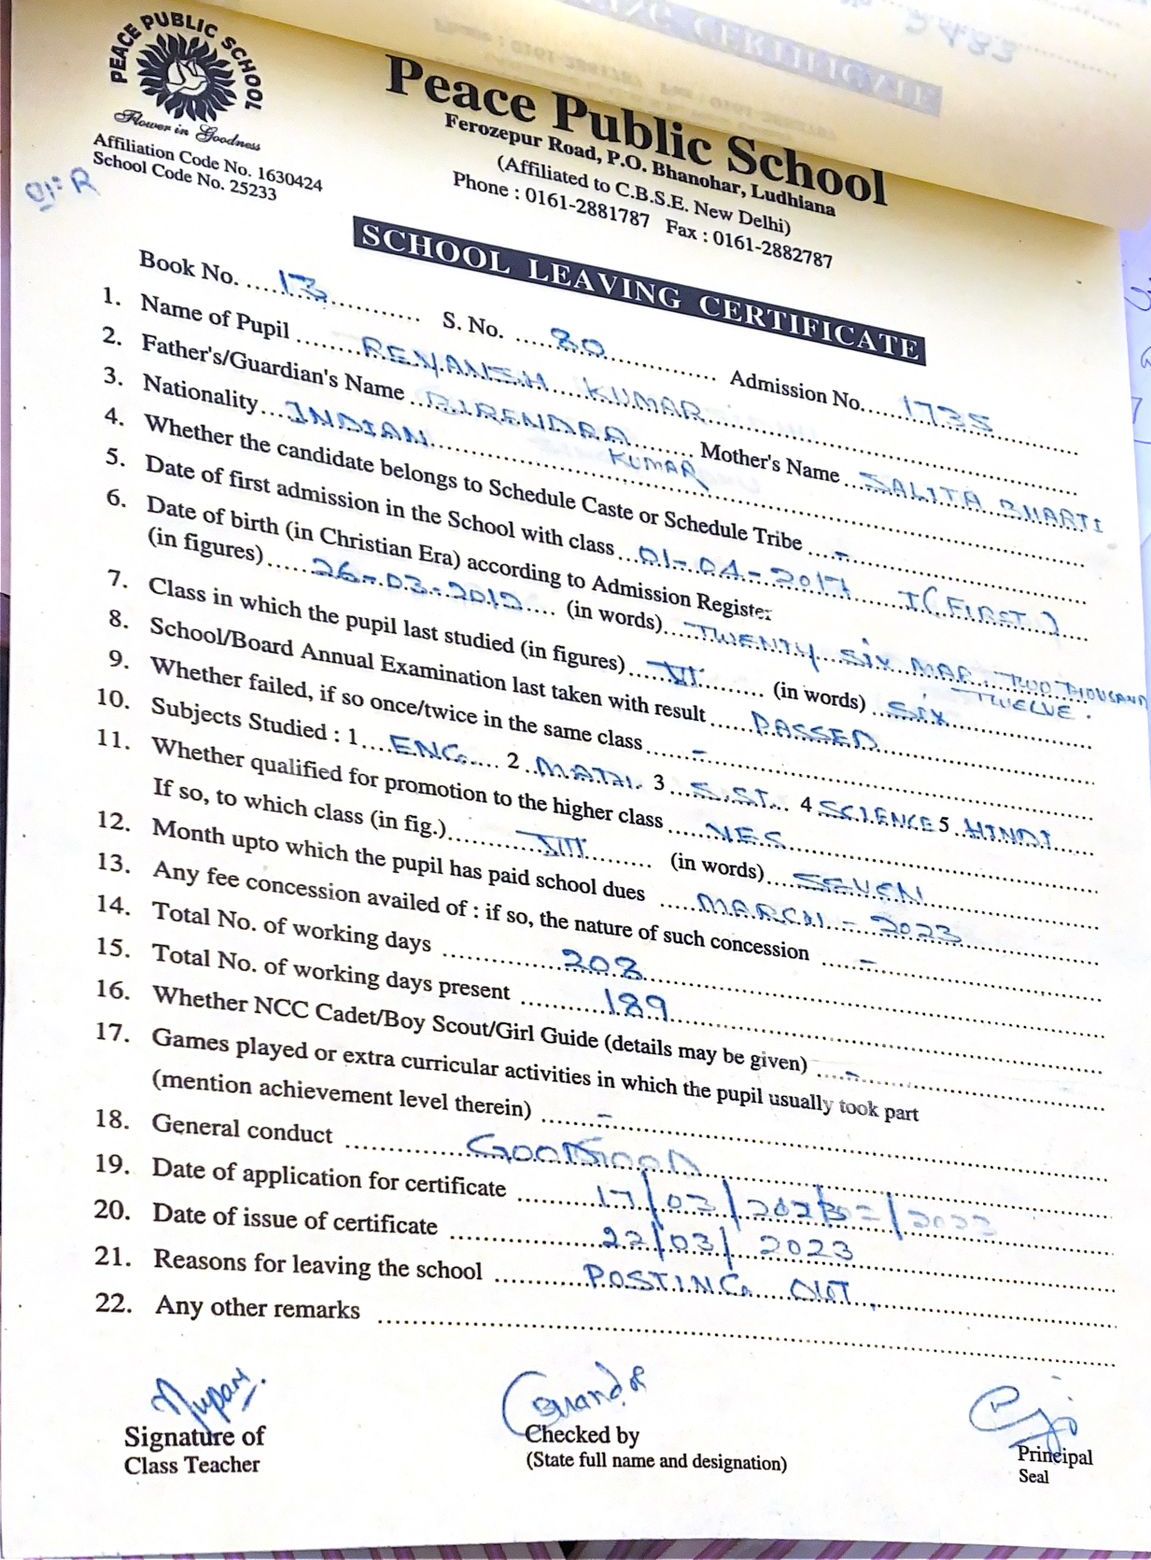 3483
PEACE PUBLIC SCHOOL
Flower in Goodness
Affiliation Code No. 1630424
School Code No. 25233
Peace Public School
Ferozepur Road, P.O. Bhanohar, Ludhiana
(Affiliated to C.B.S.E. New Delhi)
Phone : 0161-2881787 Fax : 0161-2882787
SCHOOL LEAVING CERTIFICATE
Book No. 13 S. No. 80 Admission No. 1735
1. Name of Pupil REYANSH KUMAR
2. Father's/Guardian's Name BIRENDRA KUMAR Mother's Name SALITA BHARTI
3. Nationality INDIAN
4. Whether the candidate belongs to Schedule Caste or Schedule Tribe -
5. Date of first admission in the School with class 01-04-2017 I (FIRST)
6. Date of birth (in Christian Era) according to Admission Register
(in figures) 26-03-2012 (in words) TWENTY SIX MAR TWO THOUSAND TWELVE.
7. Class in which the pupil last studied (in figures) VI (in words) SIX
8. School/Board Annual Examination last taken with result PASSED
9. Whether failed, if so once/twice in the same class -
10. Subjects Studied : 1 ENG. 2 MATH. 3 S.ST. 4 SCIENCE 5 HINDI
11. Whether qualified for promotion to the higher class YES
If so, to which class (in fig.) VII (in words) SEVEN
12. Month upto which the pupil has paid school dues MARCH - 2023
13. Any fee concession availed of : if so, the nature of such concession -
14. Total No. of working days 208
15. Total No. of working days present 189
16. Whether NCC Cadet/Boy Scout/Girl Guide (details may be given) -
17. Games played or extra curricular activities in which the pupil usually took part
(mention achievement level therein) -
18. General conduct GOOD
19. Date of application for certificate 17/03/2023
20. Date of issue of certificate 22/03/2023
21. Reasons for leaving the school POSTING OUT.
22. Any other remarks
Signature of
Class Teacher
Checked by
(State full name and designation)
Principal
Seal